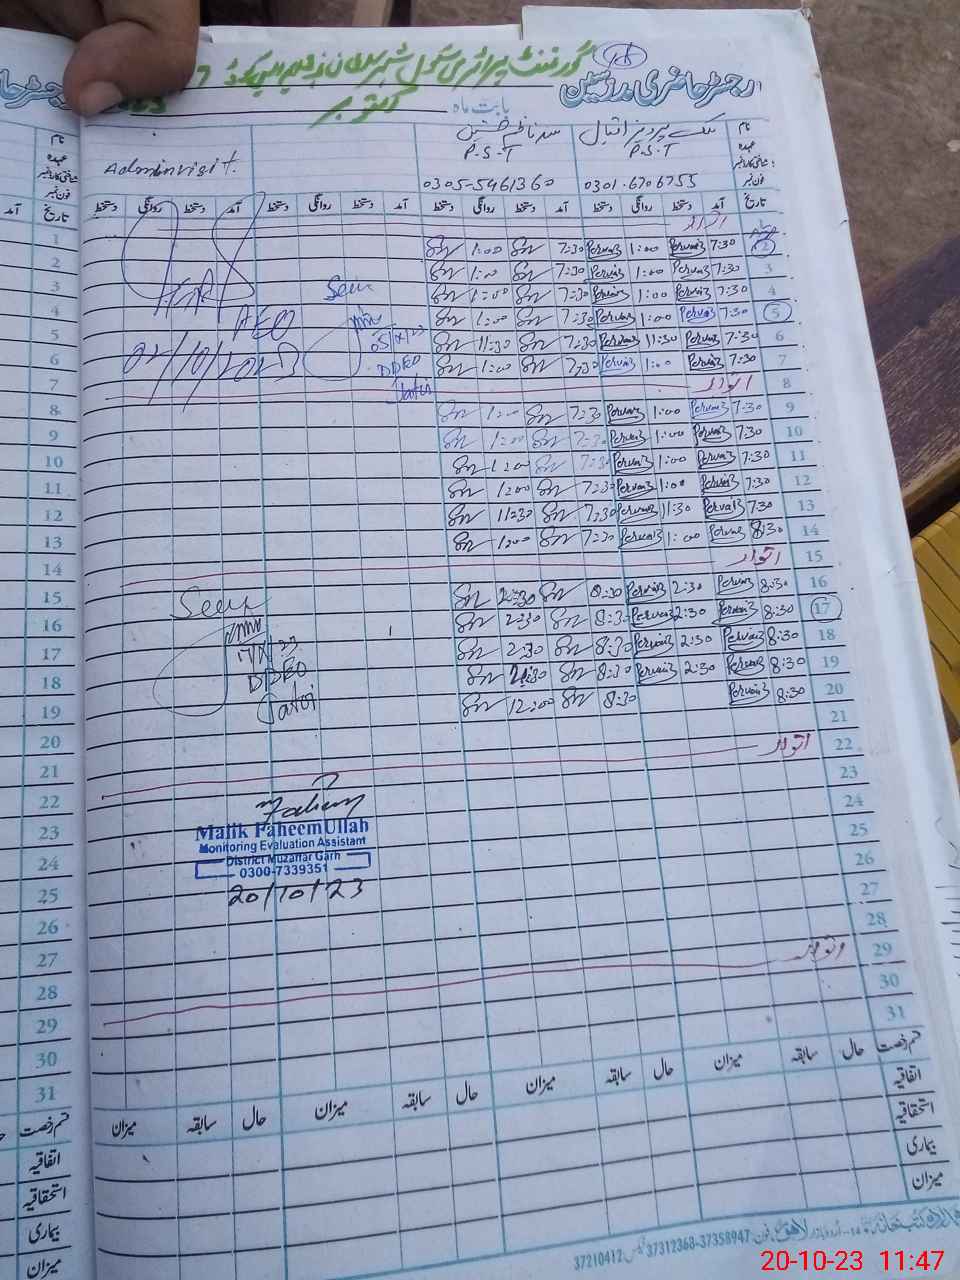 گورنمنٹ پرائمری سکول
رجسٹر حاضری مدرسین
بابت ماہ اکتوبر
نام
عہدہ
شناختی کارڈ نمبر
فون نمبر
ملک پرویز اقبال
P.S.T
0301-6706755
P.S.T
0305-5461360
Admin visit.
تاریخ آمد دستخط روانگی دستخط آمد دستخط روانگی دستخط آمد دستخط روانگی دستخط آمد دستخط روانگی دستخط
1 اتوار
2 7:30 Pervaiz 1:00 Pervaiz 7:30 1:00
3 7:30 Pervaiz 1:00 Pervaiz 7:30 1:00
4 7:30 Pervaiz 1:00 Pervaiz 7:30 1:00
5 7:30 Pervaiz 1:00 Pervaiz 7:30 1:00
6 7:30 Pervaiz 11:30 Pervaiz 7:30 11:30
7 7:30 Pervaiz 1:00 Pervaiz 7:30 1:00
8 اتوار
9 7:30 Pervaiz 1:00 Pervaiz 7:30 1:00
10 7:30 Pervaiz 1:00 Pervaiz 7:30 1:00
11 7:30 Pervaiz 1:00 Pervaiz 7:30 1:00
12 7:30 Pervaiz 1:00 Pervaiz 7:30 1:00
13 7:30 Pervaiz 11:30 Pervaiz 7:30 11:30
14 8:30 Pervaiz 1:00 Pervaiz 7:30 1:00
15 اتوار
16 8:30 Pervaiz 2:30 Pervaiz 8:30 2:30
17 8:30 Pervaiz 2:30 Pervaiz 8:30 2:30
18 8:30 Pervaiz 2:30 Pervaiz 8:30 2:30
19 8:30 Pervaiz 2:30 Pervaiz 8:30 2:30
20 8:30 Pervaiz 8:30 12:00
21
22 اتوار
23
24
25
26
27
28
29 اتوار
30
31
AEO
02/10/2023
Seen
05/X/23
DDEO
Jatoi
Seen
17/X/23
DDEO
Jatoi
Malik FaheemUllah
Monitoring Evaluation Assistant
District Muzaffar Garh
0300-7339351
20/10/23
قسم رخصت حال سابقہ میزان حال سابقہ میزان حال سابقہ میزان حال سابقہ میزان
اتفاقیہ
استحقاقیہ
بیماری
میزان
37210412 37312368-37358947
آمد تاریخ
1
2
3
4
5
6
7
8
9
10
11
12
13
14
15
16
17
18
19
20
21
22
23
24
25
26
27
28
29
30
31
قسم رخصت
اتفاقیہ
استحقاقیہ
بیماری
میزان
20-10-23 11:47